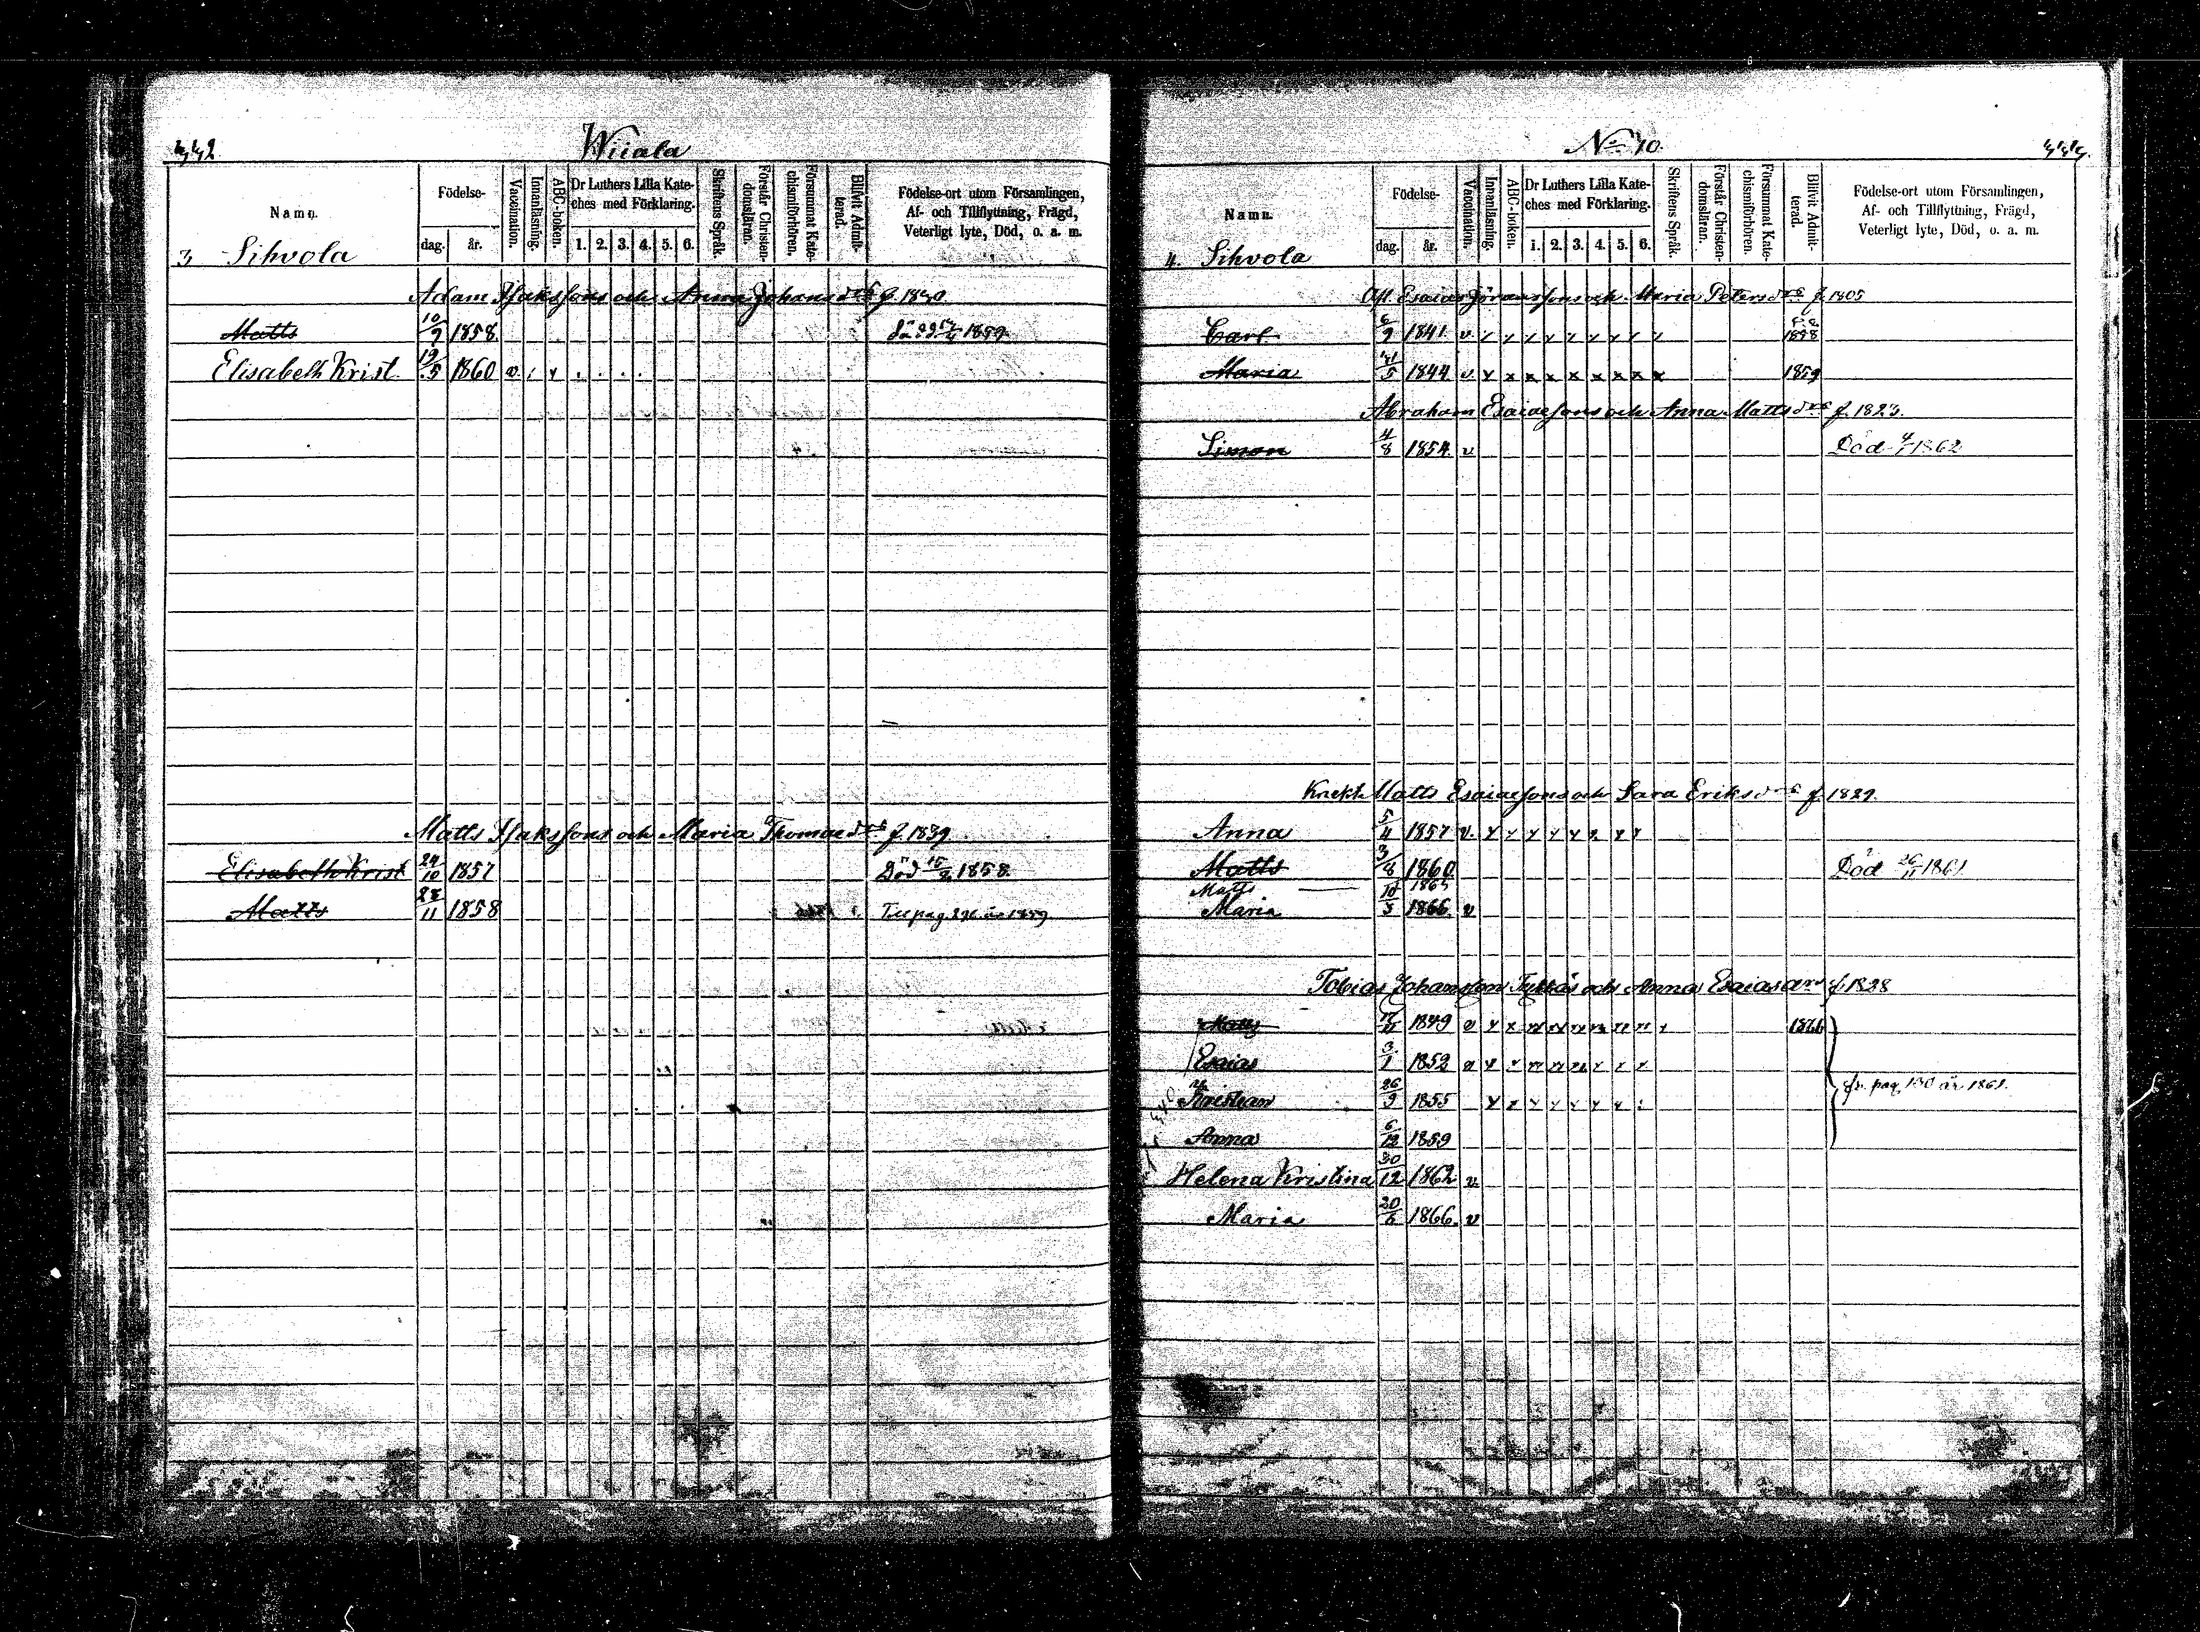 442
Wiiala
Namn.
Födelse-
dag. år.
Vaccination.
Innanläsning.
ABC-boken.
Dr Luthers Lilla Kate-
ches med Förklaring.
1. 2. 3. 4. 5. 6.
Skriftens Språk.
Förstår Christen-
domsläran.
Försummat Kate-
chismiförhören.
Blifvit Admit-
terad.
Födelse-ort utom Församlingen,
Af- och Tillflyttning, Frägd,
Veterligt lyte, Död, o. a. m.
3 Sihvola
Adam Isakssons och Anna Johansdrs f. 1830.
Matts 10/9 1858. 1859.
Elisabeth Krist. 19/5 1860 v.
Matts Isakssons och Maria Thomaedrs f. 1839
Elisabeth Krist 24/10 1857 Död 15/2 1858.
Matts 28/11 1858 Till pag. år 1859
No 10.
Namn.
Födelse-
dag. år.
Vaccination.
Innanläsning.
ABC-boken.
Dr Luthers Lilla Kate-
ches med Förklaring.
1. 2. 3. 4. 5. 6.
Skriftens Språk.
Förstår Christen-
domsläran.
Försummat Kate-
chismiförhören.
Blifvit Admit-
terad.
Födelse-ort utom Församlingen,
Af- och Tillflyttning, Frägd,
Veterligt lyte, Död, o. a. m.
4. Sihvola
Afl Esaias Göranssons och Maria Petersdrs f. 1805
Carl 6/9 1841. v. 1858
Maria 5 1844 v. x x x x x x x x 1859
Abraham Esaiaesons och Anna Mattsdrs f. 1823.
Simon 4/8 1854. v Död 1862
Knekt Matts Esaiaesons och Sara Eriksdrs f. 1829.
Anna 5/4 1857 v.
Matts 3/8 1860 Död 26/11 1861
Matts 1863
Maria 10/3 1866. v
Tobias Johansson och Anna Esaias f. 1828
Matts 1849 v 1866
Esaias 3/1 1852 v
Kristian 26/9 1855 fr. pag. 130 år 1861.
Anna 6/12 1859
Helena Kristina 30/12 1862 v.
Maria 20/6 1866. v